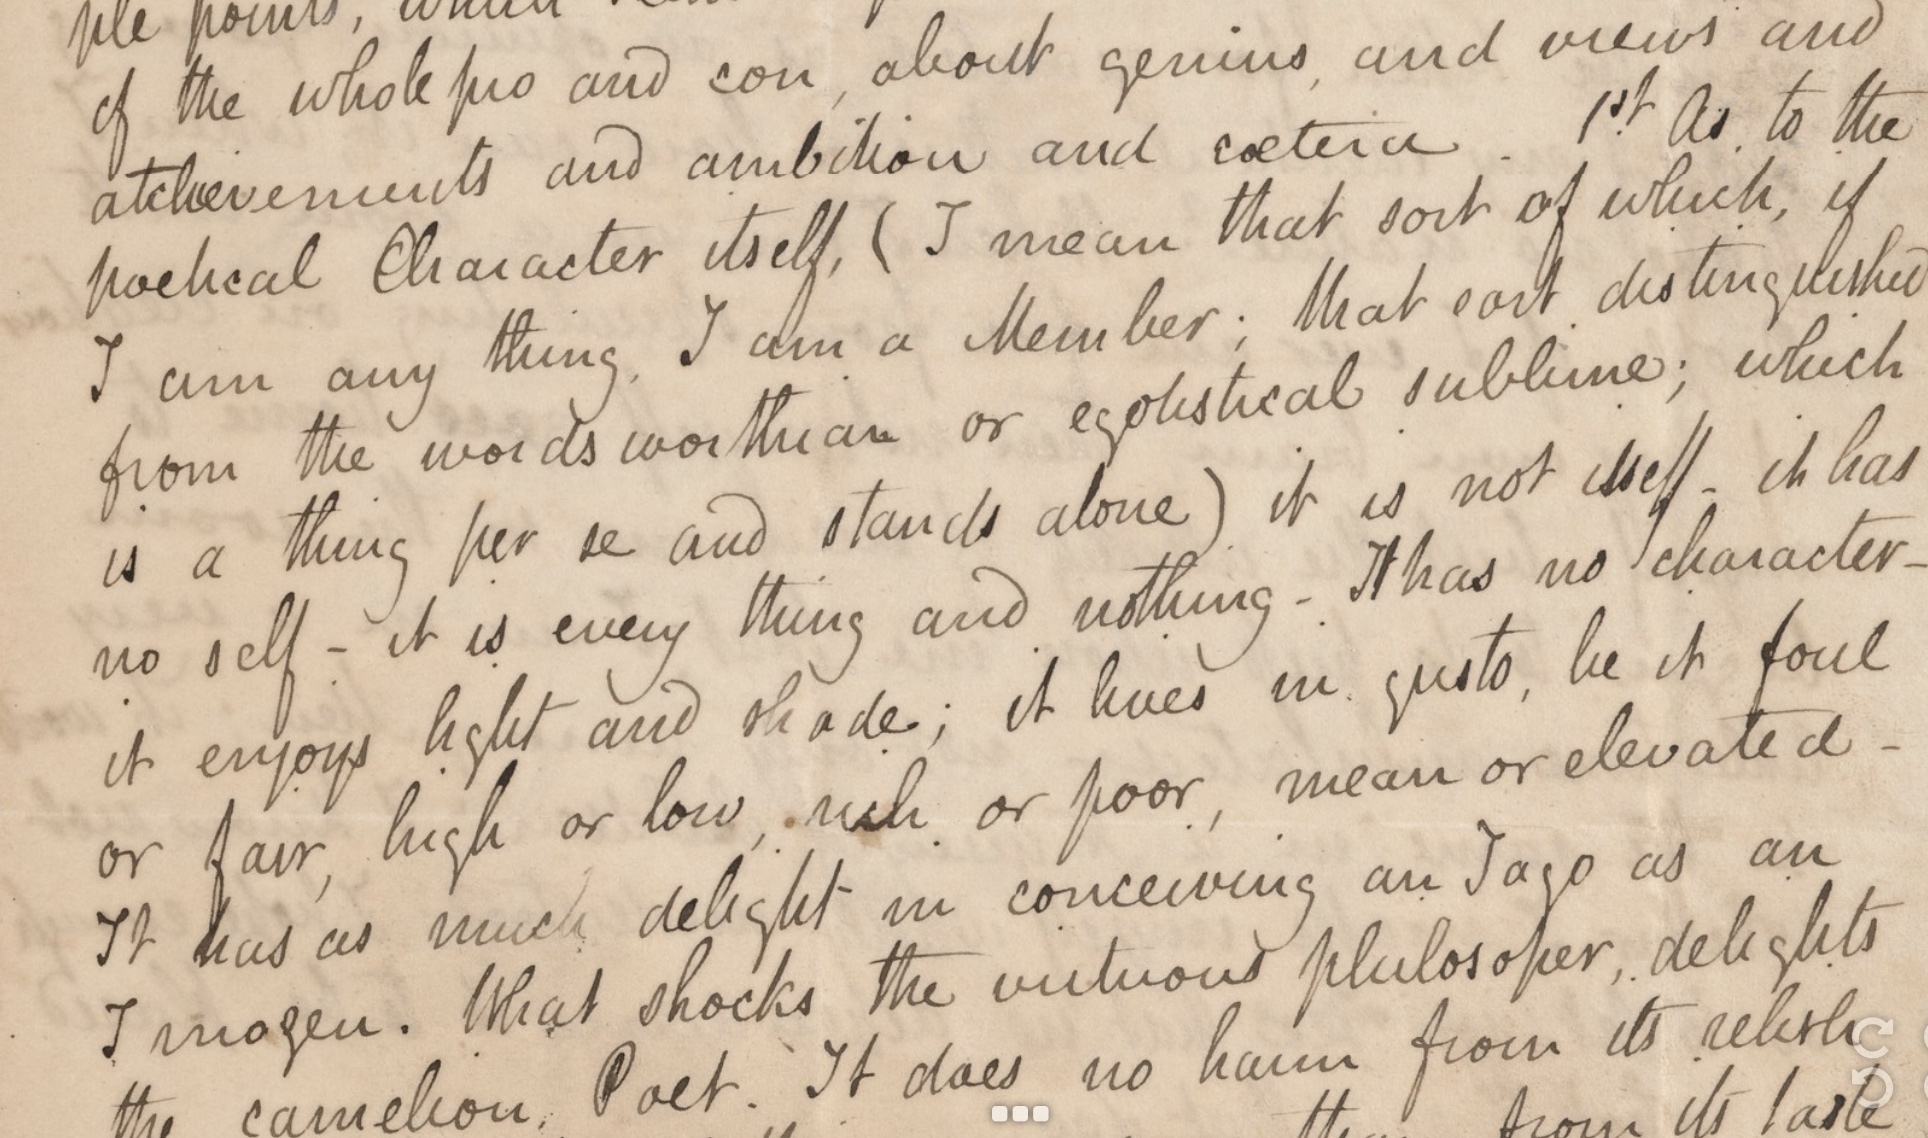 ple points, which
of the whole pro and con, about genius, and views and
atchievements and ambition and cœtera. 1st As to the
poetical Character itself, (I mean that sort of which, if
I am any thing, I am a Member; that sort distinguished
from the wordsworthian or egotistical sublime; which
is a thing per se and stands alone) it is not itself - it has
no self - it is every thing and nothing - It has no character -
it enjoys light and shade; it lives in gusto, be it foul
or fair, high or low, rich or poor, mean or elevated -
It has as much delight in conceiving an Iago as an
Imogen. What shocks the virtuous philosoper, delights
the camelion Poet. It does no harm from its relish
than from its taste